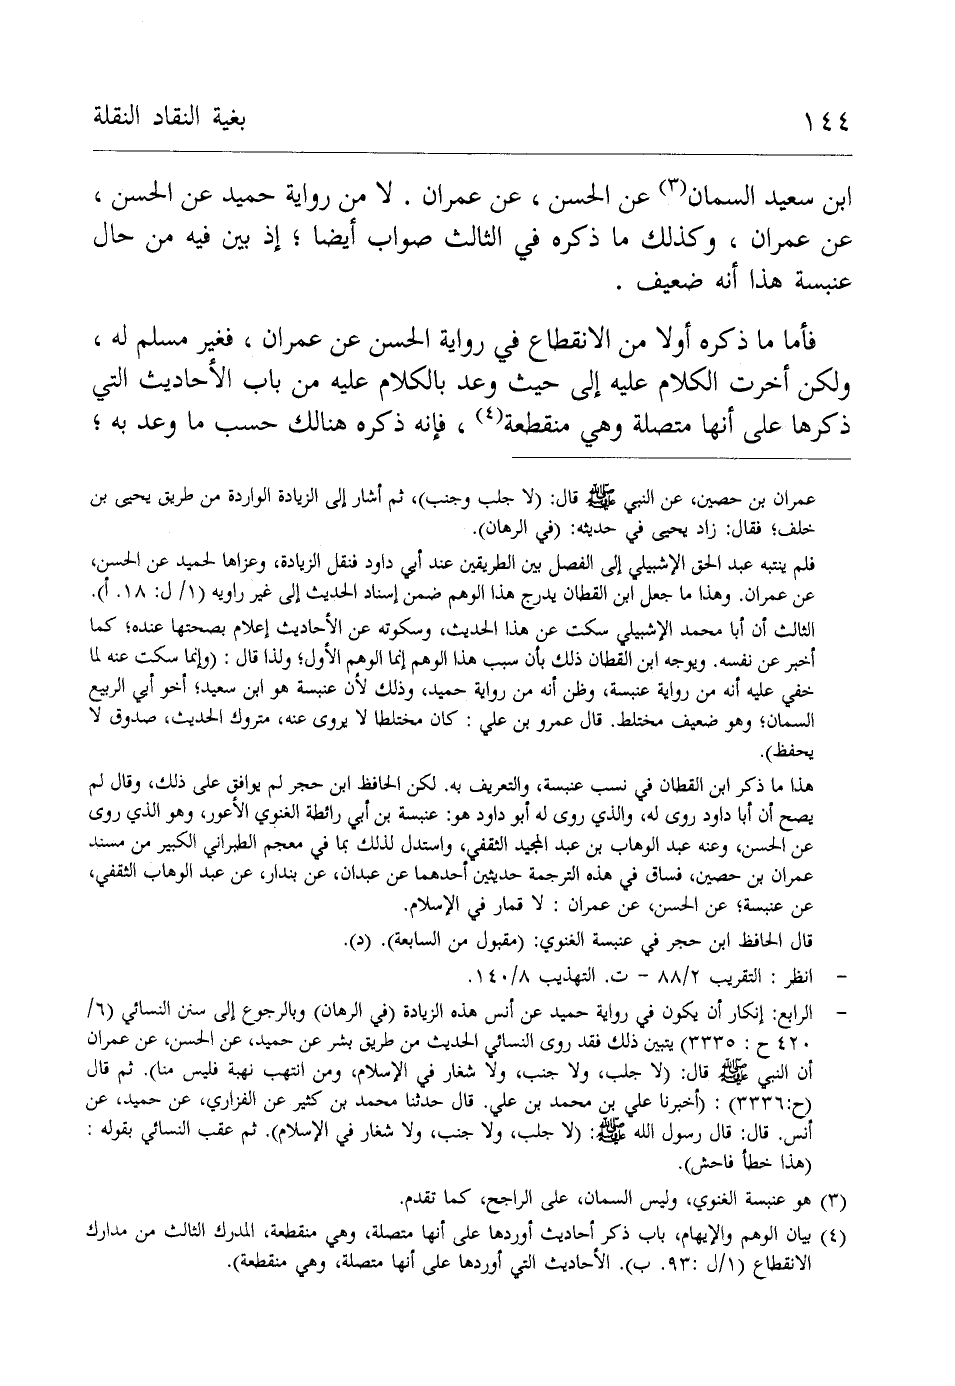 ١٤٤ بغية النقاد النقلة
ابن سعيد السمان(٣) عن الحسن ، عن عمران . لا من رواية حميد عن الحسن ،
عن عمران ، وكذلك ما ذكره في الثالث صواب أيضا ؛ إذ بين فيه من حال
عنبسة هذا أنه ضعيف .
فأما ما ذكره أولا من الانقطاع في رواية الحسن عن عمران ، فغير مسلم له ،
ولكن أخرت الكلام عليه إلى حيث وعد بالكلام عليه من باب الأحاديث التي
ذكرها على أنها متصلة وهي منقطعة(٤) ، فإنه ذكره هنالك حسب ما وعد به ؛
عمران بن حصين، عن النبي ﷺ قال: (لا جلب وجنب)، ثم أشار إلى الزيادة الواردة من طريق يحيى بن
خلف؛ فقال: زاد يحيى في حديثه: (في الرهان).
فلم ينتبه عبد الحق الإشبيلي إلى الفصل بين الطريقين عند أبي داود فنقل الزيادة، وعزاها لحميد عن الحسن،
عن عمران. وهذا ما جعل ابن القطان يدرج هذا الوهم ضمن إسناد الحديث إلى غير راويه (١/ ل: ١٨. أ).
الثالث أن أبا محمد الإشبيلي سكت عن هذا الحديث، وسكوته عن الأحاديث إعلام بصحتها عنده؛ كما
أخبر عن نفسه. ويوجه ابن القطان ذلك بأن سبب هذا الوهم إنما الوهم الأول؛ ولذا قال : (وإنما سكت عنه لما
خفي عليه أنه من رواية عنبسة، وظن أنه من رواية حميد، وذلك لأن عنبسة هو ابن سعيد؛ أخو أبي الربيع
السمان؛ وهو ضعيف مختلط. قال عمرو بن علي : كان مختلطا لا يروى عنه، متروك الحديث، صدوق لا
يحفظ).
هذا ما ذكر ابن القطان في نسب عنبسة، والتعريف به. لكن الحافظ ابن حجر لم يوافق على ذلك، وقال لم
يصح أن أبا داود روى له، والذي روى له أبو داود هو: عنبسة بن أبي رائطة الغنوي الأعور، وهو الذي روى
عن الحسن، وعنه عبد الوهاب بن عبد المجيد الثقفي، واستدل لذلك بما في معجم الطبراني الكبير من مسند
عمران بن حصين، فساق في هذه الترجمة حديثين أحدهما عن عبدان، عن بندار، عن عبد الوهاب الثقفي،
عن عنبسة؛ عن الحسن، عن عمران : لا قمار في الإسلام.
قال الحافظ ابن حجر في عنبسة الغنوي: (مقبول من السابعة). (د).
- انظر : التقريب ٨٨/٢ - ت. التهذيب ١٤٠/٨.
- الرابع: إنكار أن يكون في رواية حميد عن أنس هذه الزيادة (في الرهان) وبالرجوع إلى سنن النسائي (٦/
٤٢٠ ح : ٣٣٣٥) يتبين ذلك فقد روى النسائي الحديث من طريق بشر عن حميد، عن الحسن، عن عمران
أن النبي ﷺ قال: (لا جلب، ولا جنب، ولا شغار في الإسلام، ومن انتهب نهبة فليس منا). ثم قال
(ح:٣٣٣٦) : (أخبرنا علي بن محمد بن علي. قال حدثنا محمد بن كثير عن الفزاري، عن حميد، عن
أنس. قال: قال رسول الله ﷺ: (لا جلب، ولا جنب، ولا شغار في الإسلام). ثم عقب النسائي بقوله :
(هذا خطأ فاحش).
(٣) هو عنبسة الغنوي، وليس السمان، على الراجح، كما تقدم.
(٤) بيان الوهم والإيهام، باب ذكر أحاديث أوردها على أنها متصلة، وهي منقطعة، المدرك الثالث من مدارك
الانقطاع (١/ل :٩٣. ب). الأحاديث التي أوردها على أنها متصلة، وهي منقطعة).